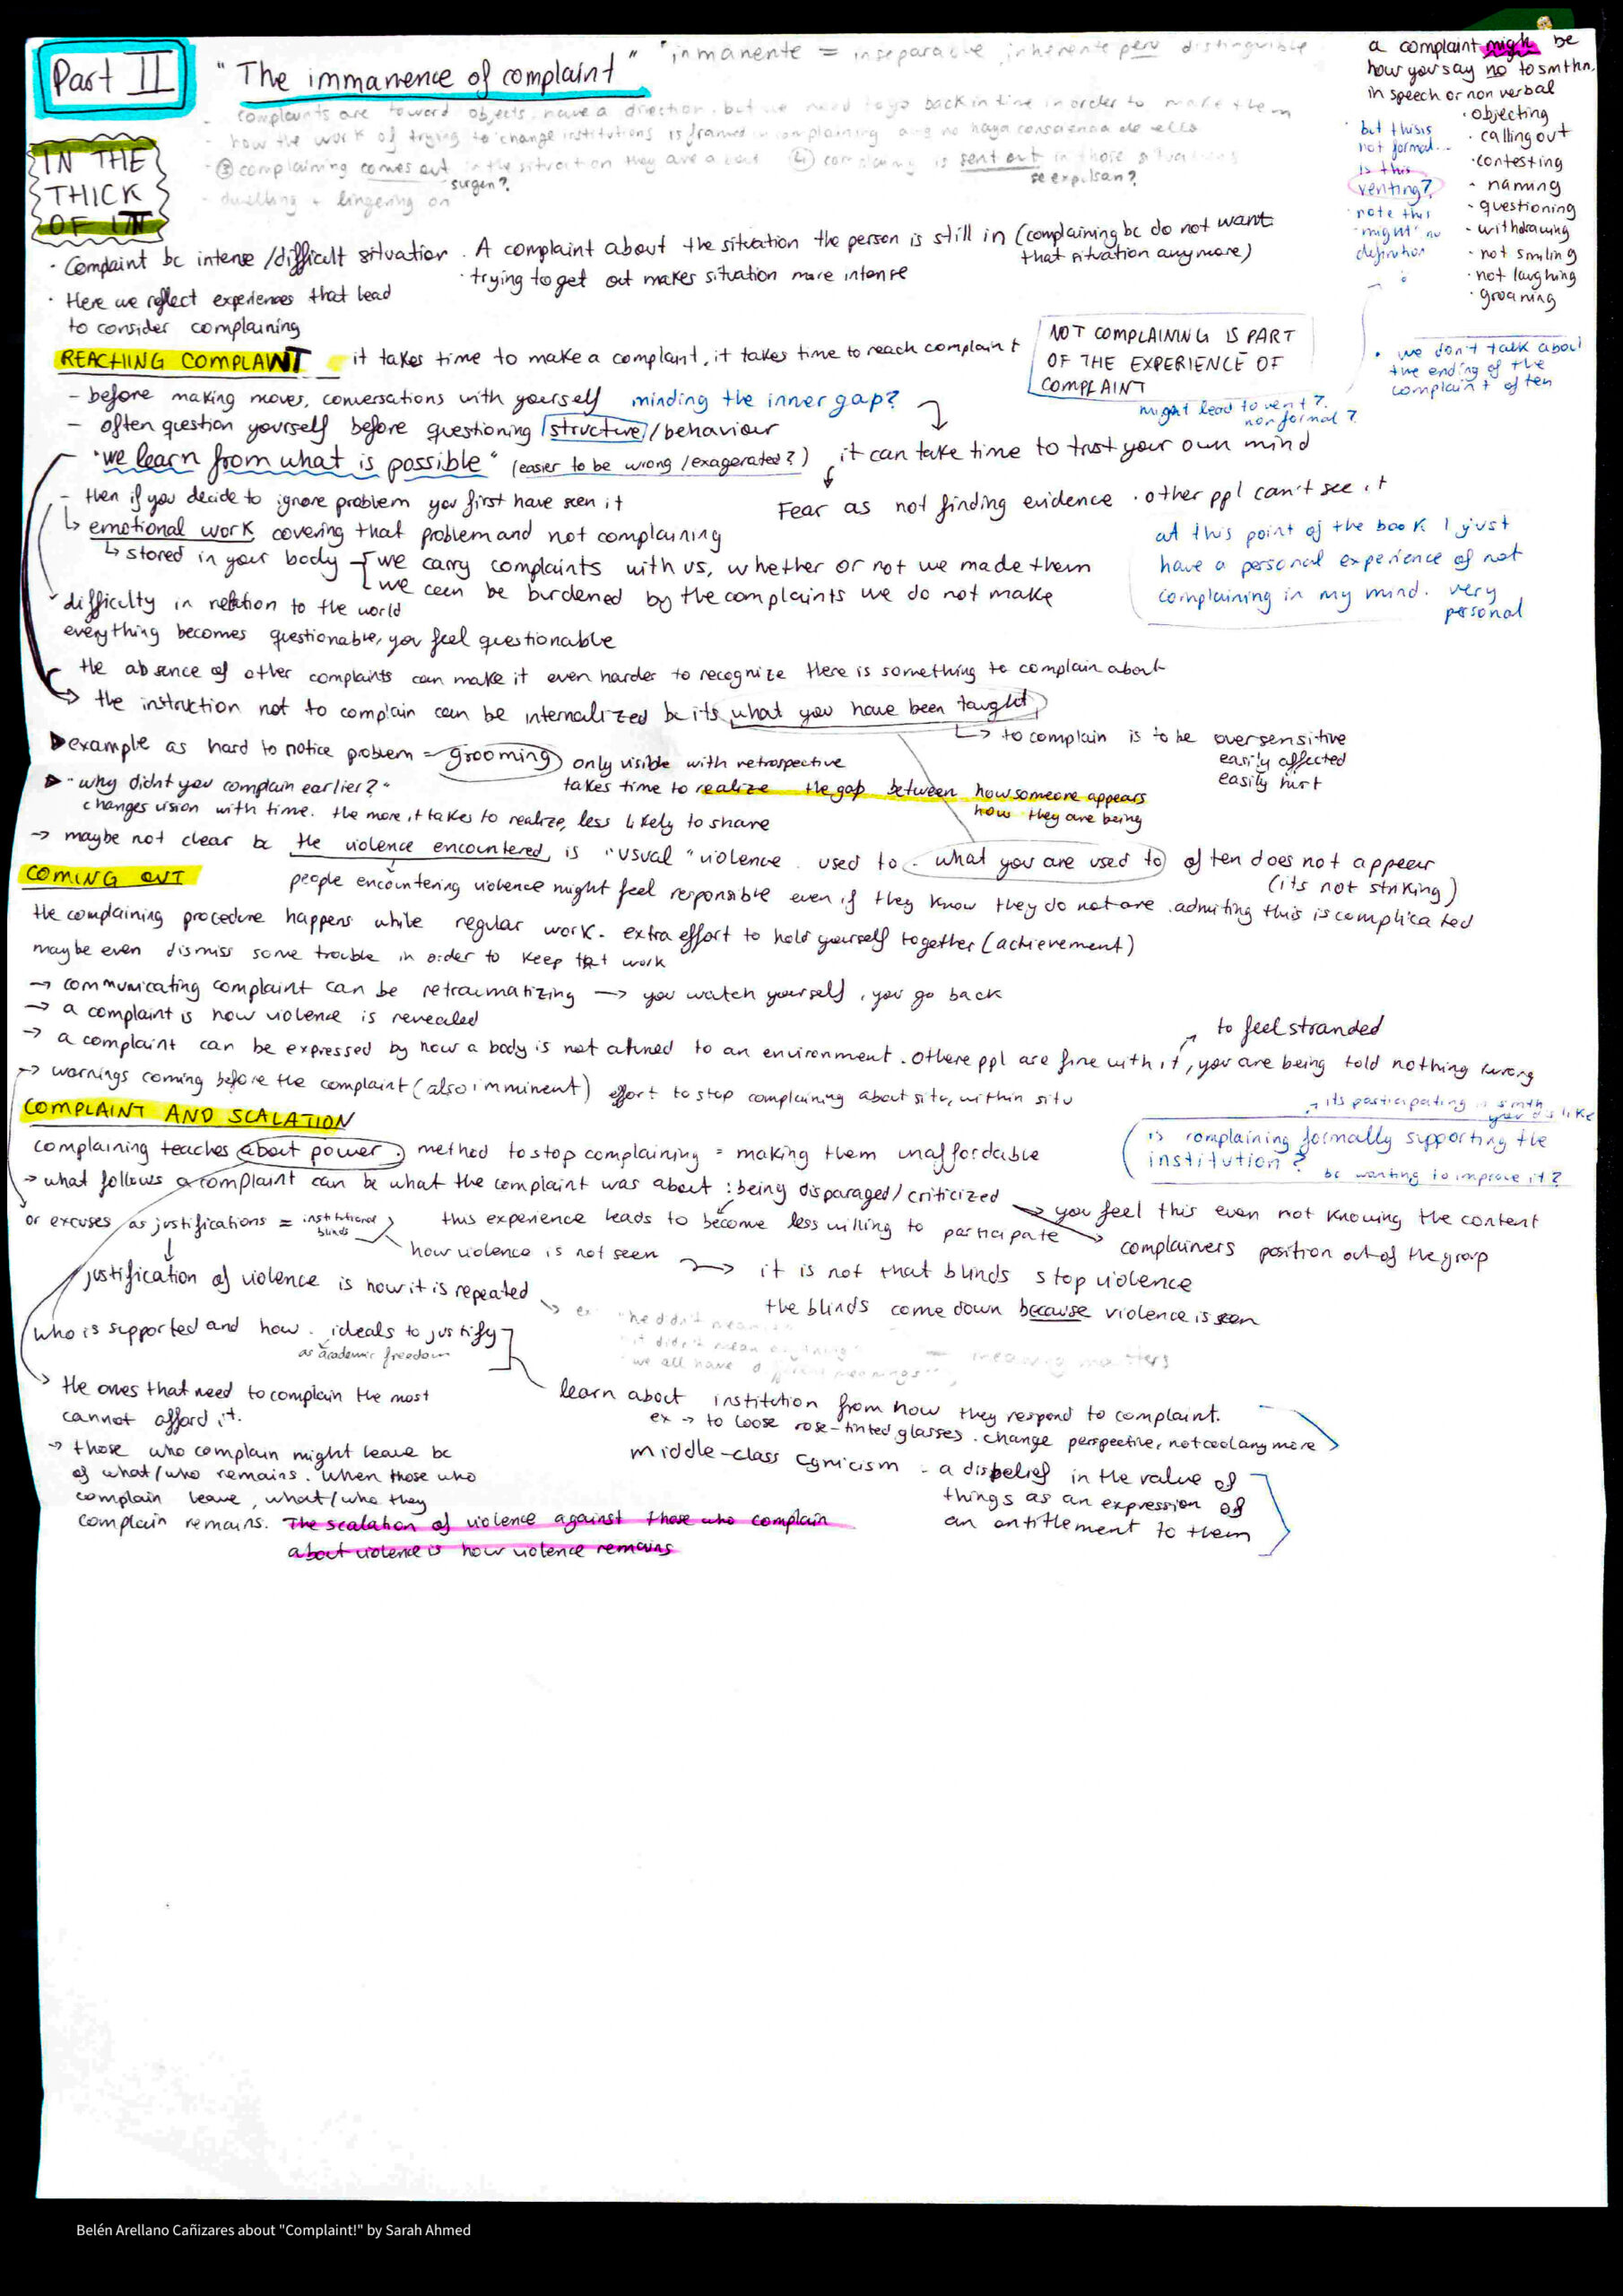 Part II
"The immanence of complaint"
"inmanente = inseparable, inherente pero distinguible
complaints are toward objects, have a direction, but we need to go back in time in order to make them
- how the work of trying to change institutions is framed in complaining aug no haya consciencia de ello
- ③ complaining comes out in the situation they are about ④ complaining is sent out in those situations
surgen?
se expulsan?
- dwelling + lingering on
a complaint might be
how you say no to smthn,
in speech or non verbal
· objecting
· calling out
· contesting
- naming
- questioning
- withdrawing
- not smiling
· not laughing
· groaning
· but this is
not formal...
is this
venting?
note this
"might" no
definition
IN THE
THICK
OF IT
· Complaint bc intense/difficult situation. A complaint about the situation the person is still in (complaining bc do not want
that situation anymore)
· trying to get out makes situation more intense
· Here we reflect experiences that lead
to consider complaining
NOT COMPLAINING IS PART
OF THE EXPERIENCE OF
COMPLAINT
might lead to vent?
non formal?
· we don't talk about
the ending of the
complaint often
REACHING COMPLAINT it takes time to make a complaint, it takes time to reach complaint
- before making moves, conversations with yourself minding the inner gap?
- often question yourself before questioning structure/behaviour
"we learn from what is possible" (easier to be wrong/exagerated?) it can take time to trust your own mind
Fear as not finding evidence · other ppl can't see it
- then if you decide to ignore problem you first have seen it
↳ emotional work covering that problem and not complaining
↳ stored in your body - we carry complaints with us, whether or not we made them
we ceen be burdened by the complaints we do not make
at this point of the book I just
have a personal experience of not
complaining in my mind. very
personal
difficulty in relation to the world
everything becomes questionable, you feel questionable
the absence of other complaints can make it even harder to recognize there is something to complain about
→ the instruction not to complain can be internalized bc its what you have been taught
↳ to complain is to be oversensitive
easily affected
easily hurt
▶ example as hard to notice problem = grooming only visible with retrospective
takes time to realize the gap between how someone appears
how they are being
▶ "why didnt you complain earlier?"
changes vision with time. the more it takes to realize, less likely to share
→ maybe not clear bc the violence encountered is "usual" violence. used to. what you are used to often does not appear
(its not striking)
people encountering violence might feel responsible even if they know they do not are. admiting this is complicated
COMING OUT
the complaining procedure happens while regular work. extra effort to hold yourself together (achievement)
maybe even dismiss some trouble in order to keep that work
→ communicating complaint can be retraumatizing → you watch yourself, you go back
→ a complaint is how violence is revealed
→ a complaint can be expressed by how a body is not atuned to an environment. Othere ppl are fine with it, you are being told nothing wrong
to feel stranded
→ warnings coming before the complaint (also imminent) effort to stop complaining about situ, within situ
COMPLAINT AND SCALATION
→ its participating in smth
you dislike
is complaining formally supporting the
institution?
bc wanting to improve it?
complaining teaches about power. method to stop complaining = making them unaffordable
→ what follows a complaint can be what the complaint was about: being disparaged/criticized → you feel this even not knowing the content
this experience leads to become less willing to participate → complainers position out of the group
or excuses as justifications = institutional
blinds
how violence is not seen → it is not that blinds stop violence
the blinds come down because violence is seen
justification of violence is how it is repeated
ex "he didn't mean
"it didn't mean anything"
"we all have different meanings"
— meaning matters
who is supported and how. ideals to justify
as academic freedom
learn about institution from how they respond to complaint.
ex → to loose rose-tinted glasses. change perspective, not cool anymore
middle-class cynicism - a disbelief in the value of
things as an expression of
an entitlement to them
the ones that need to complain the most
cannot afford it.
→ those who complain might leave bc
of what/who remains. When those who
complain leave, what/who they
complain remains. The scalation of violence against those who complain
about violence is how violence remains
Belén Arellano Cañizares about "Complaint!" by Sarah Ahmed